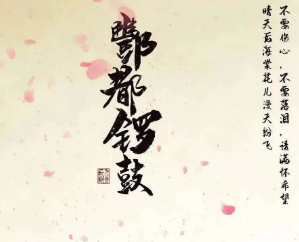 不要伤心，不要落泪，请满怀希望
晴天后海棠花儿漫天纷飞
酆都锣鼓